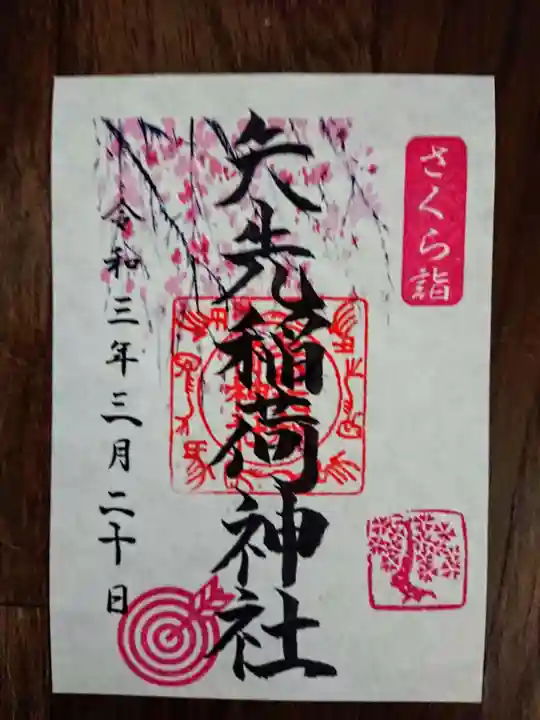 さくら詣
矢先稲荷神社
令和三年三月二十日